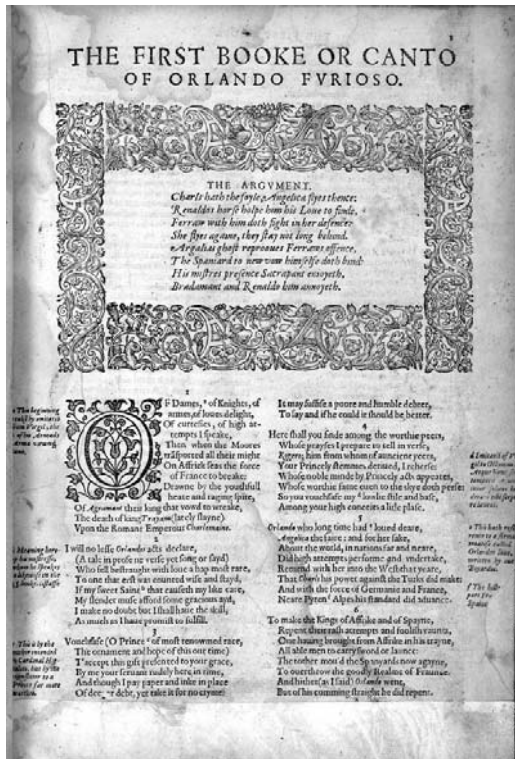 THE FIRST BOOKE OR CANTO
OF ORLANDO FVRIOSO.
THE ARGVMENT.
Charls hath the foyle, Angelica flyes thence:
Renaldos horse holpe him his Loue to finde.
Ferraw with him doth fight in her defence:
She flyes againe, they stay not long behind.
Argalias ghost reproues Ferraws offence,
The Spaniard to new vow himselfe doth bind:
His mistres presence Sacrapant enioyeth,
Bradamant and Renaldo him annoyeth.
1
OF Dames, of Knights, of
armes, of loues delight,
Of curtesies, of high at-
tempts I speake,
Then when the Moores
trãsported all their might
On Affrick seas the force
of France to breake:
Drawne by the youthfull
heate and raging spite,
Of Agramant their king that vowd to wreake,
The death of king Trayano (lately slayne)
Vpon the Romane Emperour Charlemaine.
2
I will no lesse Orlandos acts declare,
(A tale in prose ne verse yet sung or sayd)
Who fell bestraught with loue a hap most rare,
To one that erst was counted wise and stayd,
If my sweet Saint that causeth my like care,
My slender muse afford some gracious ayd,
I make no doubt but I shall haue the skill,
As much as I haue promist to fulfill.
3
Vouchsafe (O Prince of most renowned race,
The ornament and hope of this our time)
T'accept this gift presented to your grace,
By me your seruant rudely here in rime,
And though I pay paper and inke in place
Of deeper debt, yet take it for no cryme:
It may suffise a poore and humble debter,
To say and if he could it should be better.
4
Here shall you finde among the worthie peers,
Whose prayses I prepare to tell in verse,
Rogero; him from whom of auncient yeers
Your Princely stemmes deriued, I reherse:
Whose noble minde by Princely acts appeares,
Whose worthie fame euen to the skye doth perse:
So you vouchsafe my lowlie stile and base,
Among your high conceits a litle plase.
5
Orlando who long time had loued deare,
Angelica the faire: and for her sake,
About the world, in nations far and neare,
Did high attempts performe and vndertake,
Returnd with her into the West that yeare,
That Charls his power against the Turks did make:
And with the force of Germanie and France,
Neare Pyren Alpes his standard did aduance.
6
To make the Kings of Affrike and of Spayne,
Repent their rash attempts and foolish vaunts,
One hauing brought from Affrike in his trayne,
All able men to carry sword or launce:
The tother mou'd the Spanyards now agayne,
To ouerthrow the goodly Realme of Fraunce.
And hither (as I said) Orlando went,
But of his comming straight he did repent.